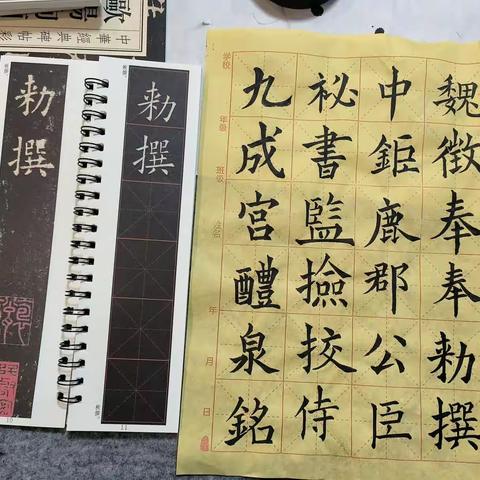 中華經典碑帖彩
勅撰
10
勅撰
11
学校
年级
班级
姓名
年
月
日
九成宮醴泉銘
祕書監撿挍侍
中鉅鹿郡公臣
魏徵奉奉勅撰